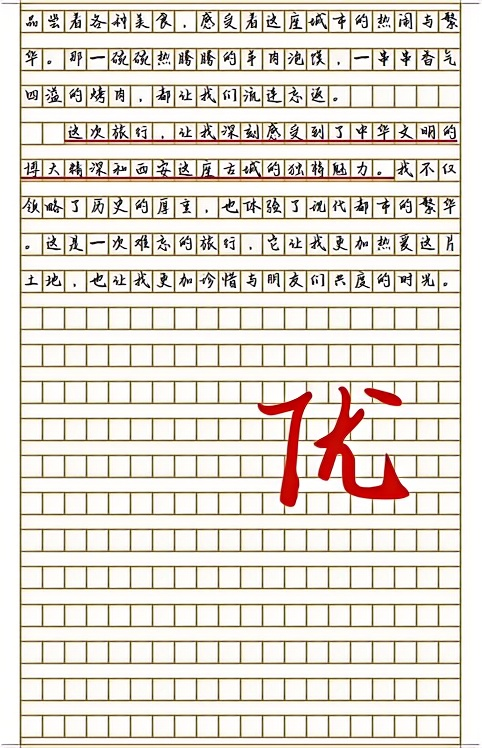 品尝着各种美食，感受着这座城市的热闹与繁
华。那一碗碗热腾腾的羊肉泡馍，一串串香气
四溢的烤肉，都让我们流连忘返。
这次旅行，让我深刻感受到了中华文明的
博大精深和西安这座古城的独特魅力。我不仅
领略了历史的厚重，也体验了现代都市的繁华
。这是一次难忘的旅行，它让我更加热爱这片
土地，也让我更加珍惜与朋友们共度的时光。
优